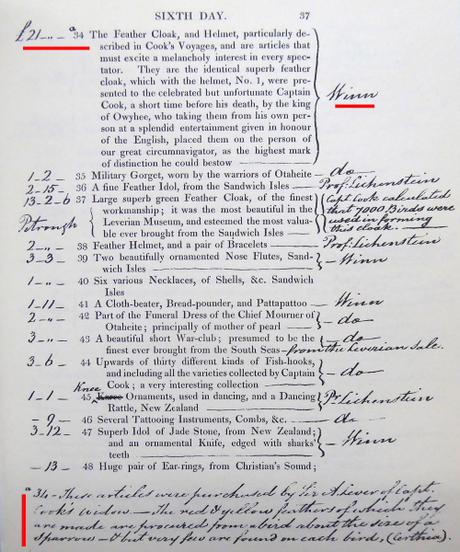 SIXTH DAY. 37
£21-"-" a 34 The Feather Cloak, and Helmet, particularly de-
scribed in Cook's Voyages, and are articles that
must excite a melancholy interest in every spec-
tator. They are the identical superb feather
cloak, which with the helmet, No. 1, were pre-
sented to the celebrated but unfortunate Captain
Cook, a short time before his death, by the king
of Owyhee, who taking them from his own per-
son at a splendid entertainment given in honour
of the English, placed them on the person of
our great circumnavigator, as the highest mark
of distinction he could bestow
Winn
1-2- 35 Military Gorget, worn by the warriors of Otaheite - do
2-15- 36 A fine Feather Idol, from the Sandwich Isles Prof: Lichenstein
13-2-6 37 Large superb green Feather Cloak, of the finest
workmanship; it was the most beautiful in the
Leverian Museum, and esteemed the most valua-
ble ever brought from the Sandwich Isles
Capt Cook calculated
that 7000 Birds were
used in forming
this cloak.
2-"- 38 Feather Helmet, and a pair of Bracelets Prof: Lichenstein
3-3- 39 Two beautifully ornamented Nose Flutes, Sand-
wich Isles - Winn
1-"- 40 Six various Necklaces, of Shells, &c. Sandwich
Isles
1-11- 41 A Cloth-beater, Bread-pounder, and Pattapattoo - Winn
2-"- 42 Part of the Funeral Dress of the Chief Mourner of
Otaheite; principally of mother of pearl - do
3-"- 43 A beautiful short War-club; presumed to be the - do
finest ever brought from the South Seas - from the Leverian Sale.
3-6- 44 Upwards of thirty different kinds of Fish-hooks,
and including all the varieties collected by Captain
Cook; a very interesting collection - do
Knee
1-1- 45 Ornaments, used in dancing, and a Dancing
Rattle, New Zealand Pr. Lichenstein
-9- 46 Several Tattooing Instruments, Combs, &c. - do
3-12- 47 Superb Idol of Jade Stone, from New Zealand;
and an ornamental Knife, edged with sharks'
teeth - Winn
-13- 48 Huge pair of Ear-rings, from Christian's Sound;
a 34 - These articles were purchased by Sir A. Lever of Capt.
Cook's Widow - The red & yellow feathers of which they
are made are procured from a bird about the size of a
sparrow - & but very few are found on each bird, (Certhia).